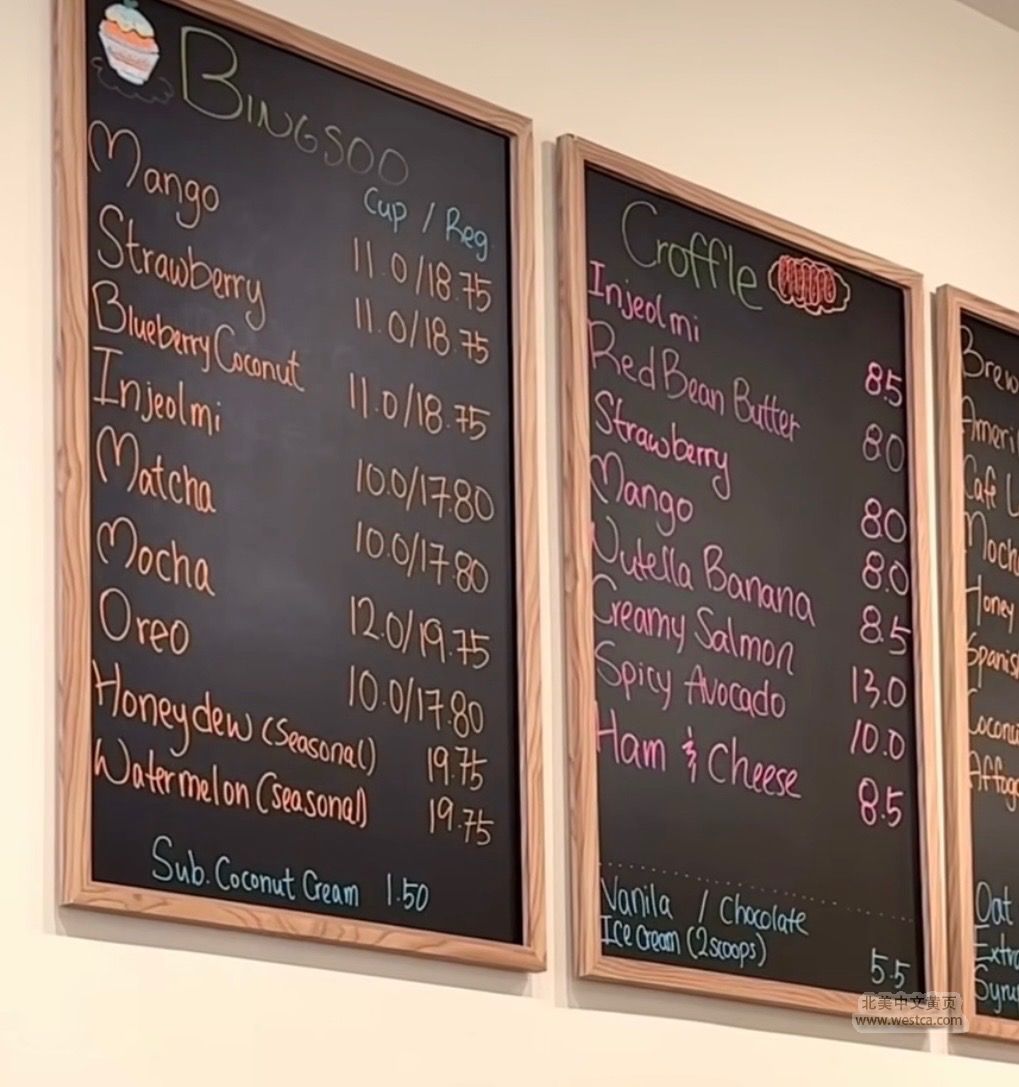 Bingsoo
Cup / Reg.
Mango 11.0/18.75
Strawberry 11.0/18.75
Blueberry Coconut 11.0/18.75
Injeolmi 10.0/17.80
Matcha 10.0/17.80
Mocha 12.0/19.75
Oreo 10.0/17.80
Honeydew (Seasonal) 19.75
Watermelon (Seasonal) 19.75
Sub. Coconut Cream 1.50
Croffle
Injeolmi 8.5
Red Bean Butter 8.0
Strawberry 8.0
Mango 8.0
Nutella Banana 8.5
Creamy Salmon 13.0
Spicy Avocado 10.0
Ham & Cheese 8.5
Vanila / Chocolate
Ice Cream (2scoops) 5.5
Brew
Ameri
Cafe L
Moch
Honey
Spanis
Coconu
Affog
Oat
Extra
Syru
北美中文黄页
www.westca.com